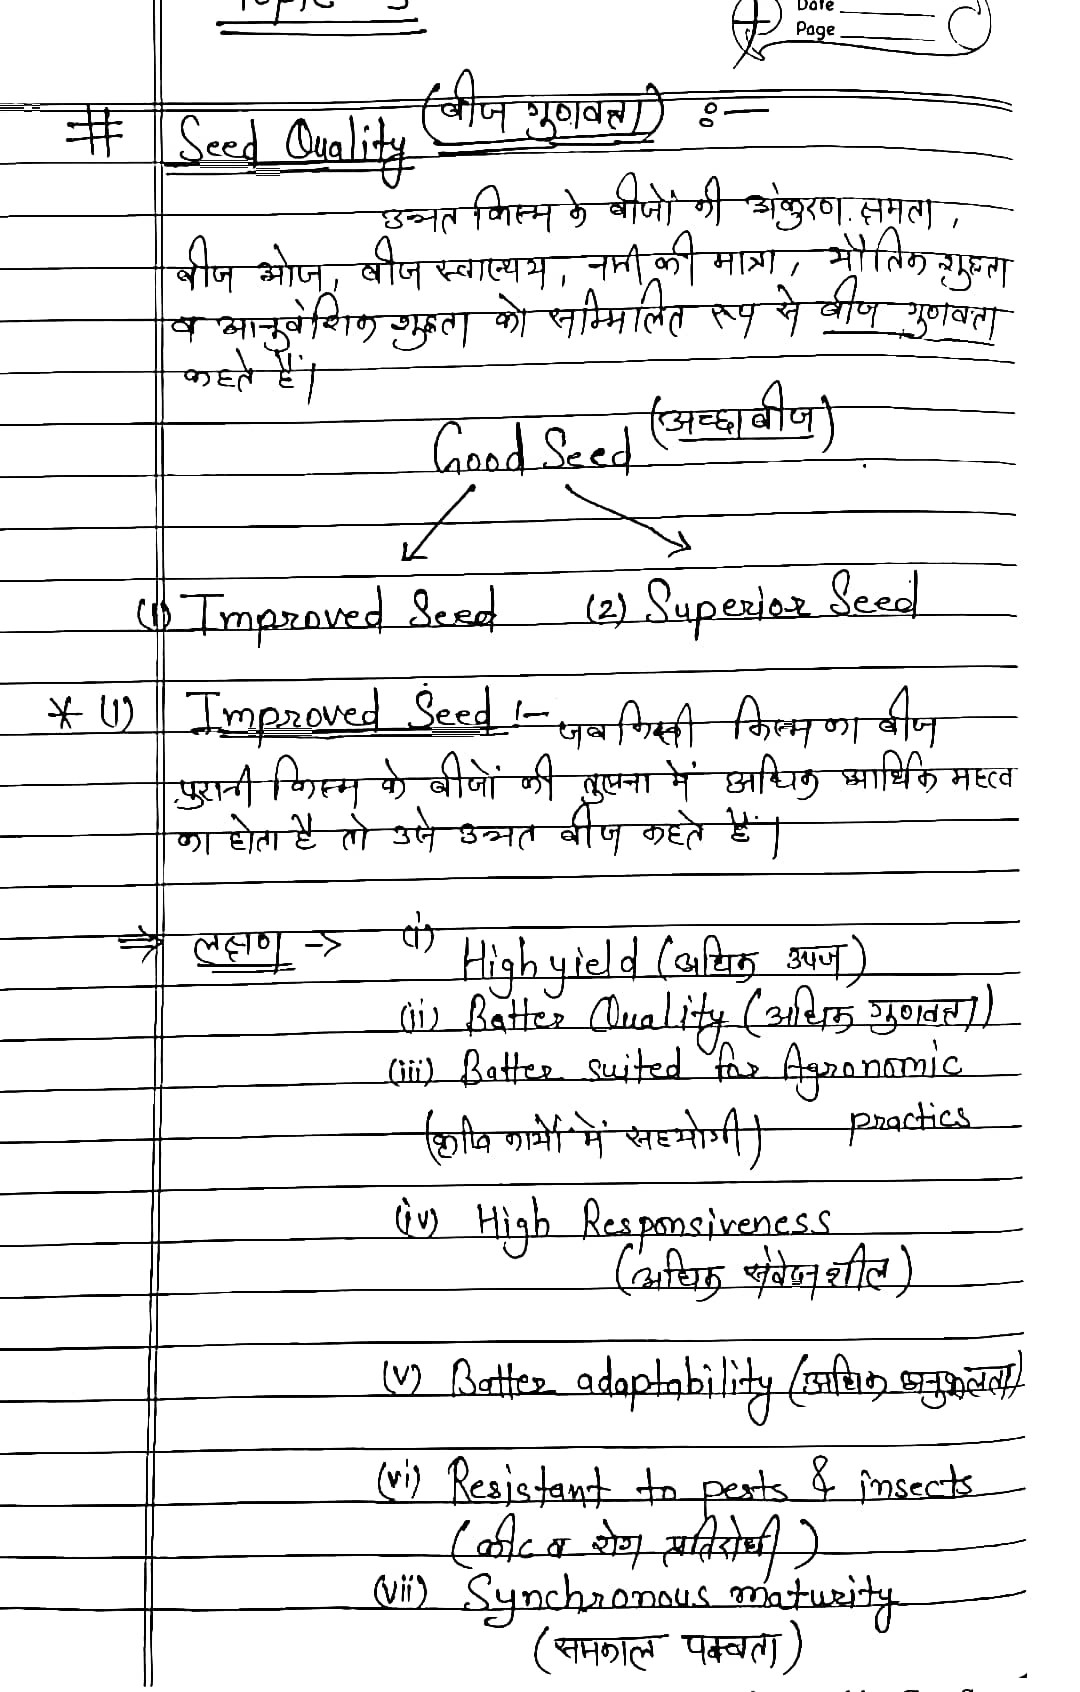 Date
Page
# Seed Quality (बीज गुणवत्ता) :-
उन्नत किस्म के बीजों की अंकुरण क्षमता,
बीज ओज, बीज स्वास्थय, नमी की मात्रा, भौतिक शुद्धता
व आनुवंशिक शुद्धता को सम्मिलित रूप से बीज गुणवत्ता
कहते हैं।
Good Seed (अच्छा बीज)
(1) Improved Seed (2) Superior Seed
* (1) Improved Seed :- जब किसी किस्म का बीज
पुरानी किस्म के बीजों की तुलना में अधिक आर्थिक महत्व
का होता है तो उसे उन्नत बीज कहते हैं।
⇒ लक्षण -> (i) High yield (अधिक उपज)
(ii) Batter Quality (अधिक गुणवत्ता)
(iii) Batter suited for Agronomic
practics
(कृषि कार्यों में सहयोगी)
(iv) High Responsiveness
(अधिक संवेदनशील)
(v) Batter adaptability (अधिक अनुकूलता)
(vi) Resistant to pests & insects
(कीट व रोग प्रतिरोधी)
(vii) Synchronous maturity
(समकाल पक्वता)